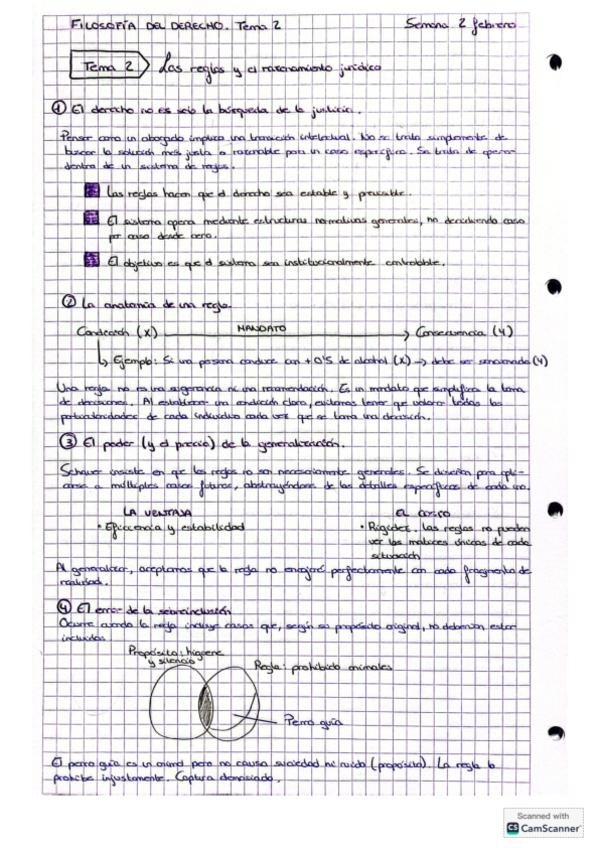 FILOSOFÍA DEL DERECHO. Tema 2
Semana 2 febrero
Tema 2
Las reglas y el razonamiento jurídico
① El derecho no es solo la búsqueda de la justicia.
Pensar como un abogado implica una transición intelectual. No se trata simplemente de
buscar la solución más justa o razonable para un caso específico. Se trata de operar
dentro de un sistema de reglas.
Las reglas hacen que el derecho sea estable y previsible.
El sistema opera mediante estructuras normativas generales, no decidiendo caso
por caso desde cero.
El objetivo es que el sistema sea institucionalmente controlable.
② La anatomía de una regla.
Condición (X) MANDATO → Consecuencia (Y)
↳ Ejemplo: Si una persona conduce con +0'5 de alcohol (X) → debe ser sancionada (Y)
Una regla no es una sugerencia ni una recomendación. Es un mandato que simplifica la toma
de decisiones. Al establecer una condición clara, evitamos tener que valorar todas las
particularidades de cada individuo cada vez que se toma una decisión.
③ El poder (y el precio) de la generalización.
Schauer insiste en que las reglas no son necesariamente generales. Se diseñan para apli-
carse a múltiples casos futuros, abstrayéndose de los detalles específicos de cada uno.
LA VENTAJA
• Eficiencia y estabilidad
EL COSTO
• Rigidez. Las reglas no pueden
ver los matices únicos de cada
situación
Al generalizar, aceptamos que la regla no encajará perfectamente con cada fragmento de
realidad.
④ El error de la sobreinclusión
Ocurre cuando la regla incluye casos que, según su propósito original, no deberían estar
incluidos
Propósito: higiene
y silencio
Regla: prohibido animales
Perro guía
El perro guía es un animal pero no causa suciedad ni ruido (propósito). La regla lo
prohíbe injustamente. Captura demasiado.
Scanned with
CS CamScanner